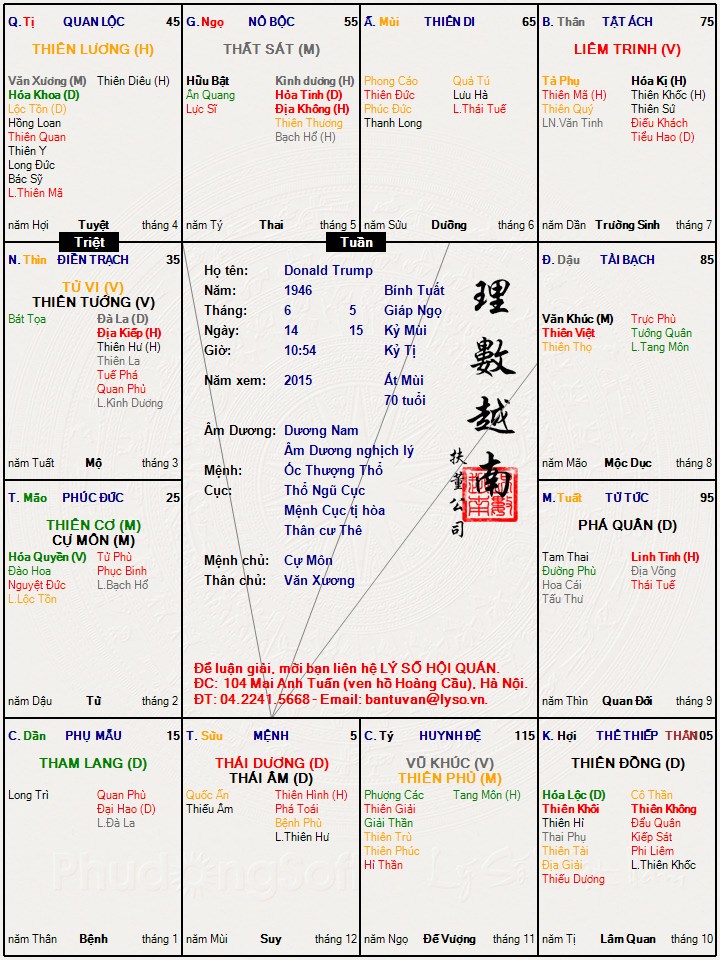 Q. Tị QUAN LỘC 45
THIÊN LƯƠNG (H)
Văn Xương (M) Thiên Diêu (H)
Hóa Khoa (D)
Lộc Tồn (D)
Hồng Loan
Thiên Quan
Thiên Y
Long Đức
Bác Sỹ
L.Thiên Mã
năm Hợi Tuyệt tháng 4
G. Ngọ NÔ BỘC 55
THẤT SÁT (M)
Hữu Bật Kình dương (H)
Ân Quang Hỏa Tinh (D)
Lực Sĩ Địa Không (H)
Thiên Thương
Bạch Hổ (H)
năm Tý Thai tháng 5
Ấ. Mùi THIÊN DI 65
Phong Cáo Quả Tú
Thiên Đức Lưu Hà
Phúc Đức L.Thái Tuế
Thanh Long
năm Sửu Dưỡng tháng 6
B. Thân TẬT ÁCH 75
LIÊM TRINH (V)
Tả Phụ Hóa Kị (H)
Thiên Mã (H) Thiên Khốc (H)
Thiên Quý Thiên Sứ
LN.Văn Tinh Điếu Khách
Tiểu Hao (D)
năm Dần Trường Sinh tháng 7
Triệt
Tuần
N. Thìn ĐIỀN TRẠCH 35
TỬ VI (V)
THIÊN TƯỚNG (V)
Bát Tọa Đà La (D)
Địa Kiếp (H)
Thiên Hư (H)
Thiên La
Tuế Phá
Quan Phủ
L.Kình Dương
năm Tuất Mộ tháng 3
Họ tên: Donald Trump
Năm: 1946 Bính Tuất
Tháng: 6 5 Giáp Ngọ
Ngày: 14 15 Kỷ Mùi
Giờ: 10:54 Kỷ Tị
Năm xem: 2015 Ất Mùi
70 tuổi
Âm Dương: Dương Nam
Âm Dương nghịch lý
Mệnh: Ốc Thượng Thổ
Cục: Thổ Ngũ Cục
Mệnh Cục tị hòa
Thân cư Thê
Mệnh chủ: Cự Môn
Thân chủ: Văn Xương
理數越南
扶董公司
Để luận giải, mời bạn liên hệ LÝ SỐ HỘI QUÁN.
ĐC: 104 Mai Anh Tuấn (ven hồ Hoàng Cầu), Hà Nội.
ĐT: 04.2241.5668 - Email: bantuvan@lyso.vn.
Đ. Dậu TÀI BẠCH 85
Văn Khúc (M) Trực Phù
Thiên Việt Tướng Quân
Thiên Thọ L.Tang Môn
năm Mão Mộc Dục tháng 8
T. Mão PHÚC ĐỨC 25
THIÊN CƠ (M)
CỰ MÔN (M)
Hóa Quyền (V) Tử Phù
Đào Hoa Phục Binh
Nguyệt Đức L.Bạch Hổ
L.Lộc Tồn
năm Dậu Tử tháng 2
M. Tuất TỬ TỨC 95
PHÁ QUÂN (D)
Tam Thai Linh Tinh (H)
Đường Phù Địa Võng
Hoa Cái Thái Tuế
Tấu Thư
năm Thìn Quan Đới tháng 9
C. Dần PHỤ MẪU 15
THAM LANG (D)
Long Trì Quan Phù
Đại Hao (D)
L.Đà La
năm Thân Bệnh tháng 1
T. Sửu MỆNH 5
THÁI DƯƠNG (D)
THÁI ÂM (D)
Quốc Ấn Thiên Hình (H)
Thiếu Âm Phá Toái
Bệnh Phù
L.Thiên Hư
năm Mùi Suy tháng 12
C. Tý HUYNH ĐỆ 115
VŨ KHÚC (V)
THIÊN PHỦ (M)
Phượng Các Tang Môn (H)
Thiên Giải
Giải Thần
Thiên Trù
Thiên Phúc
Hỉ Thần
năm Ngọ Đế Vượng tháng 11
K. Hợi THÊ THIẾP THÂN 105
THIÊN ĐỒNG (D)
Hóa Lộc (D) Cô Thần
Thiên Khôi Thiên Không
Thiên Hỉ Đẩu Quân
Thai Phụ Kiếp Sát
Thiên Tài Phi Liêm
Địa Giải L.Thiên Khốc
Thiếu Dương
năm Tị Lâm Quan tháng 10